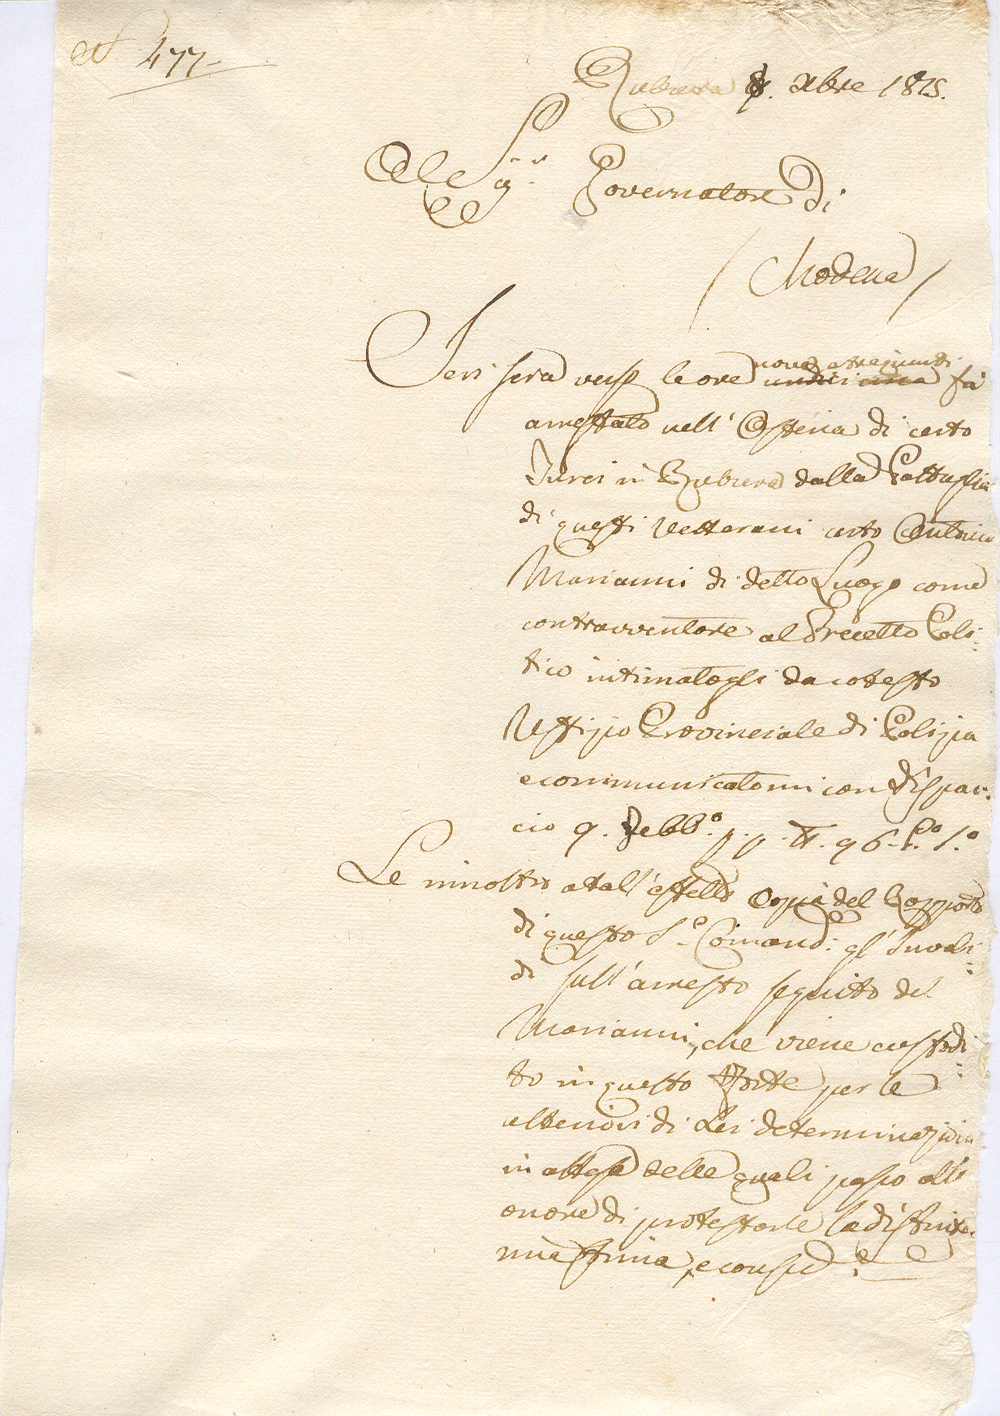 N. 477.
Rubiera 8. Xbre 1815.
Al Sig.r Governatore di
Modena
nove e tre quarti
Jeri sera verso le ore undici circa fù
arrestato nell'Osteria di certo
Turci in Rubiera dalla Pattuglia
di questi Vetterani certo Antonio
Marianni di detto Luogo come
contravventore al Precetto Poli:
tico intimatogli da cotesto
Uffizio Provinciale di Polizia
e communicatomi con Dispac:
cio 9. Febb.o p.p. N. 96. P.o S.o
Le innoltro a tall'effetto Copia del Rapporto
di questo S.r Comand: gl'Invali:
di sull'arresto seguito del
Marianni, che viene custodi:
to in questo Forte per le
ulteriori di Lei determinazioni
in attesa delle quali passo all'
onore di protestarle la distinta
mia stima, e consid.e